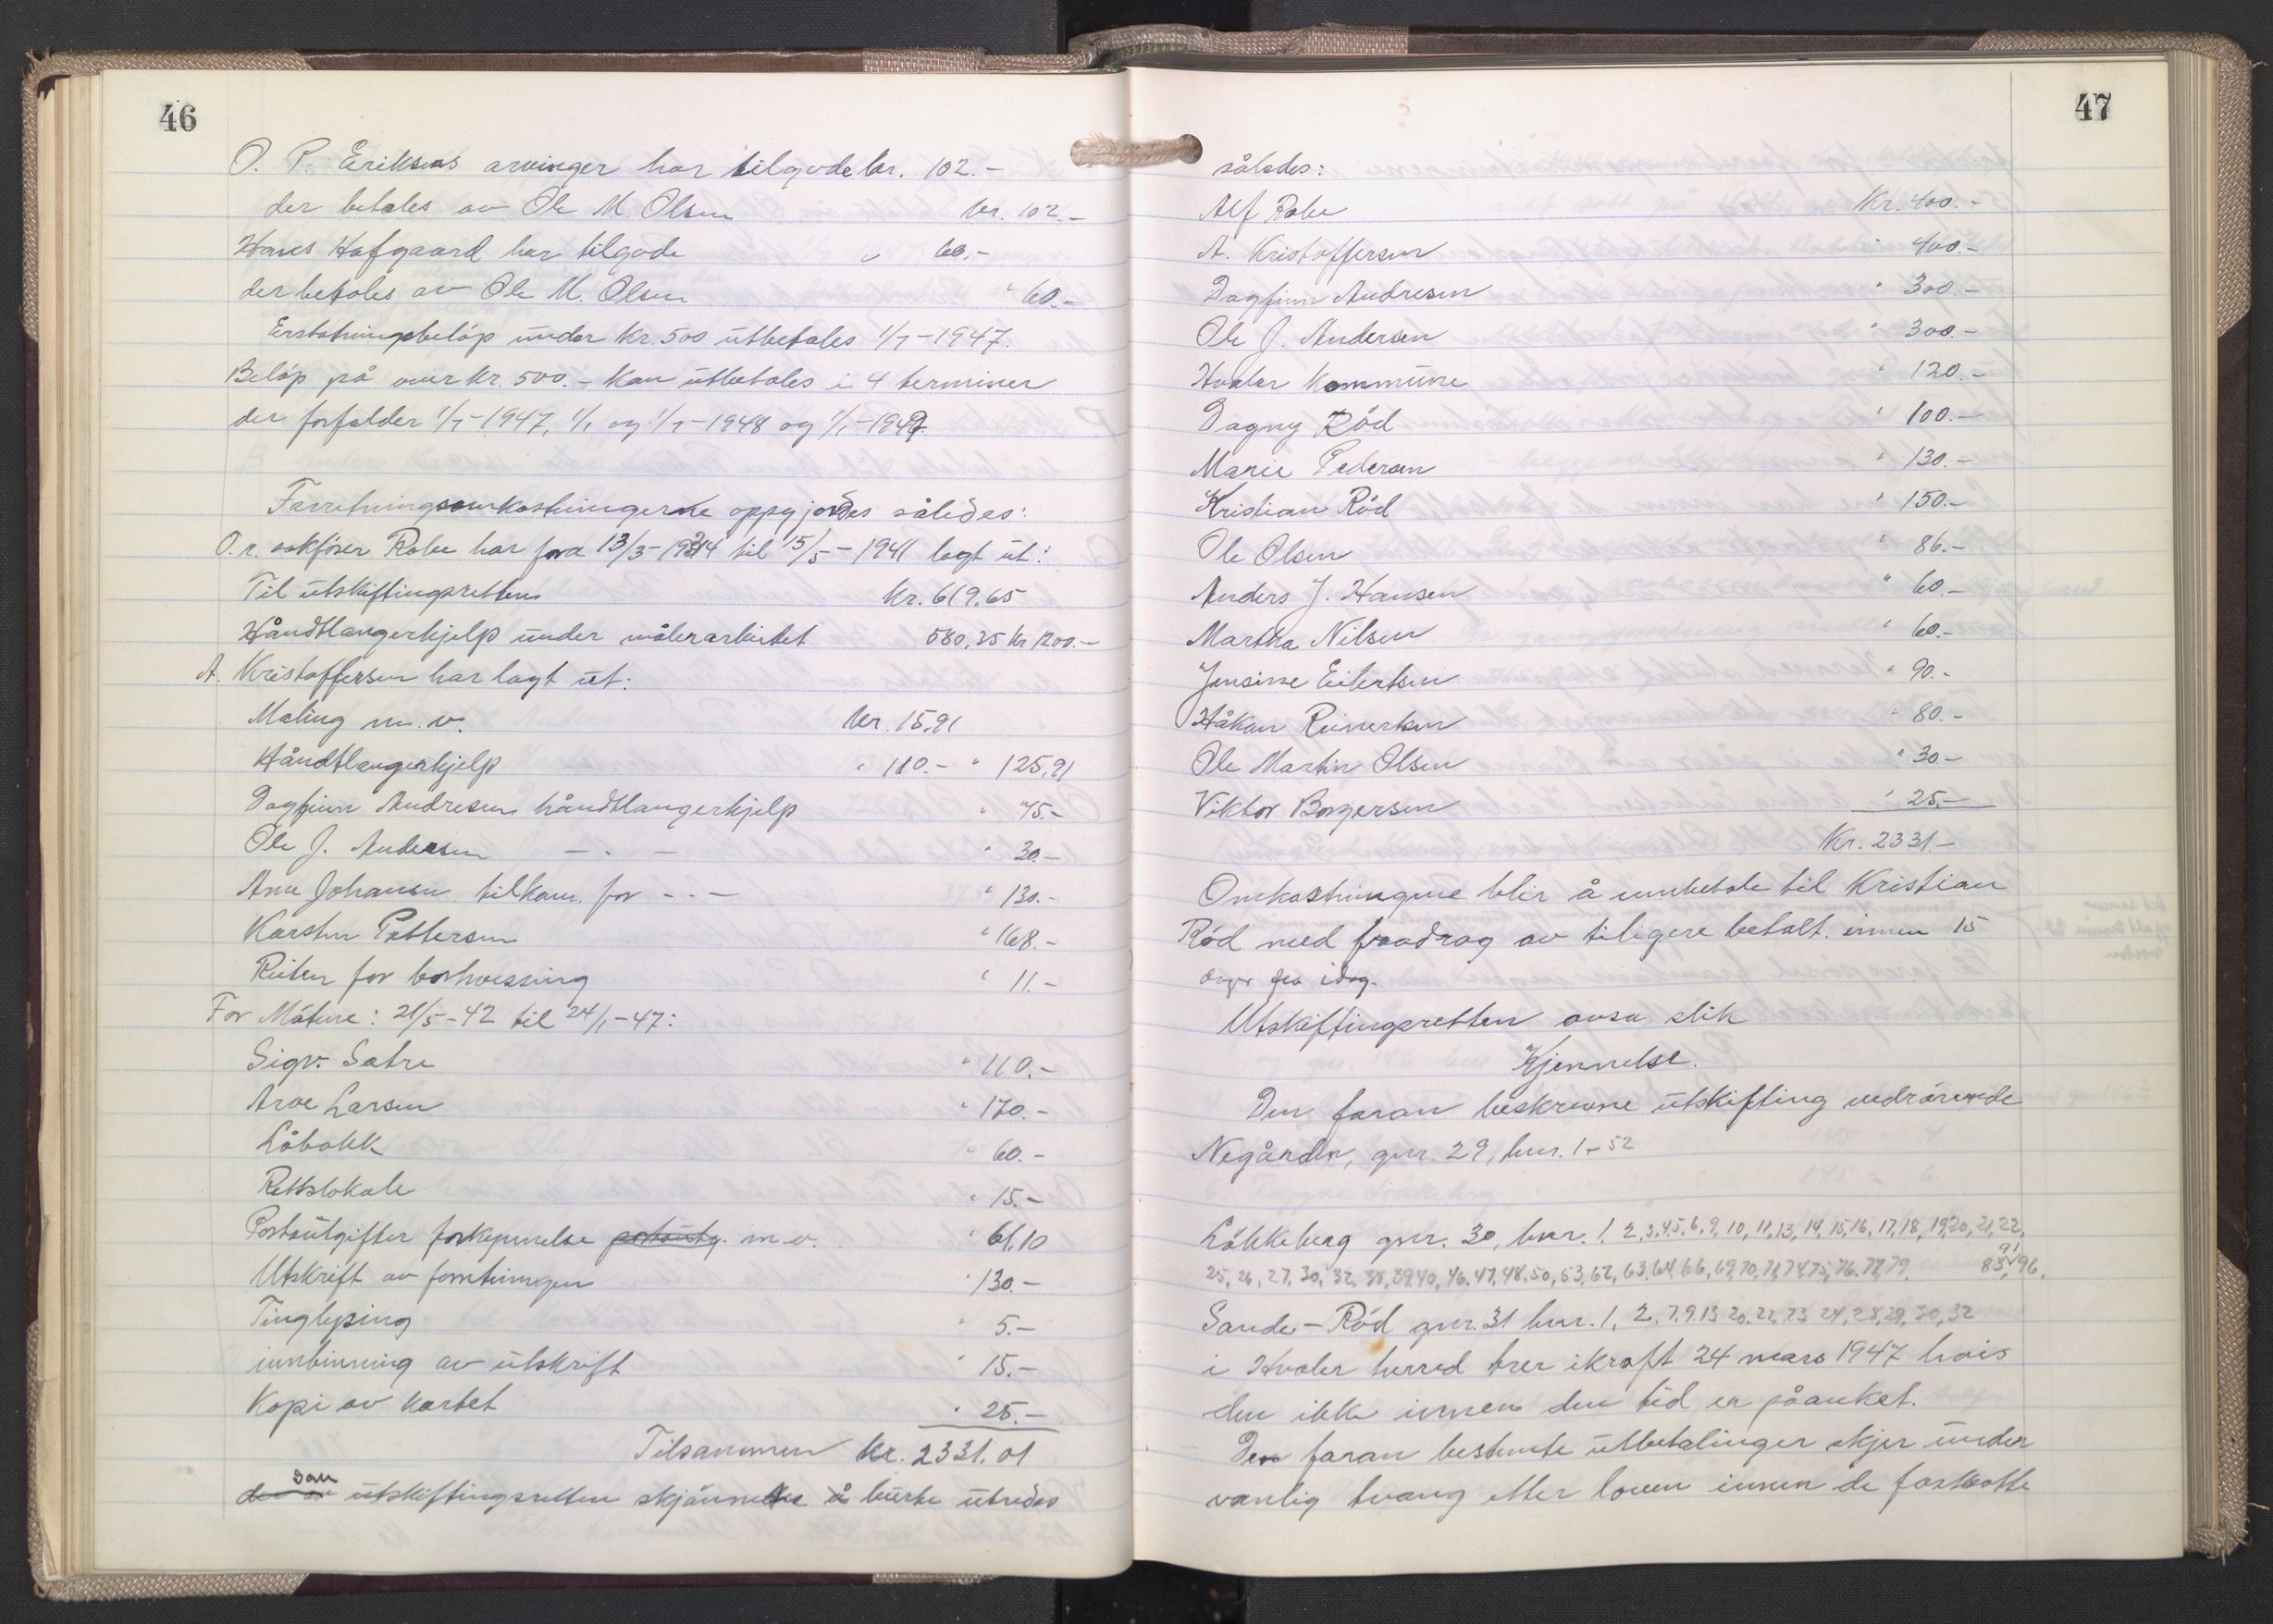 46
O. P. Eriksens arvinger har tilgode kr. 102.-
der betales av Ole M. Olsen kr. 102.-
Hans Hafgaard har tilgode " 60.-
der betales av Ole M. Olsen " 60.-
Erstatningsbeløp under kr. 500 utbetales 1/7-1947.
Beløp på over kr. 500.- kan utbetales i 4 terminer
der forfalder 1/7-1947, 1/1 og 1/7-1948 og 1/1-1949.
Forretningsomkostningerne oppgjordes således:
O.r. sakfører Robe har fra 13/3-1934 til 15/5-1941 lagt ut:
Til utskiftingsretten kr. 619.65
Håndtlangerhjelp under målerarbeidet 580,35 kr 1200.-
A. Kristoffersen har lagt ut:
Maling m. v. kr. 15,91
Håndtlangerhjelp " 110.- " 125,91
Dagfinn Andresen håndtlangerhjelp " 75.-
Ole J. Andersen - " - " 30.-
Arne Johansen tilkom. for - " - " 130.-
Karsten Pettersen " 168.-
Reiten for borhvessing " 11.-
For Møtene: 21/5-42 til 24/1-47:
Sigv. Satre " 110.-
Arve Larsen " 170.-
Låbakk " 60.-
Rettslokale " 15.-
Portoutgifter forkynnelse portoutg. m.v. " 61,10
Utskrift av forretningen " 130.-
Tinglysing " 5.-
innbinning av utskrift " 15.-
Kopi av kartet " 25.-
Tilsammen kr. 2331.01
der av som utskiftingsretten skjønnettes å burte utredes
47
således:
Alf Robe Kr. 400.-
A. Kristoffersen " 400.-
Dagfinn Andresen " 300.-
Ole J. Andersen " 300.-
Hvaler Kommune " 120.-
Dagny Rød " 100.-
Marie Pedersen " 130.-
Kristian Rød " 150.-
Ole Olsen " 86.-
Anders J. Hansen " 60.-
Martha Nilsen " 60.-
Jensine Eilertsen " 90.-
Håkon Reinertsen " 80.-
Ole Martin Olsen " 30.-
Viktor Borgersen " 25.-
Kr. 2331.-
Omkostningene blir å innbetale til Kristian
Rød med fradrag av tiligere betalt. innen 15
dager fra idag.
Utskiftingsretten avsa slik
Kjennelse.
Den foran beskrevne utskifting vedrørende
Negården, gnr. 29, bnr. 1-52
Løkkeberg gnr. 30, bnr. 1, 2,3,4,5,6,9,10,11,13,14,15,16,17,18,19,20,21,22,
25,26,27,30,32,38,39,40,46,47,48,50,53,62,63,64,66,69,70,71,74,75,76,77,79. 83, 91, 96.
Sande-Rød gnr. 31 bnr. 1, 2, 7, 9, 13 20, 22, 23 24, 28, 29, 30, 32
i Hvaler herred trer ikraft 24 mars 1947 hvis
den ikke innen den tid er påanket.
Den foran bestemte utbetalinger skjer under
vanlig tvang etter loven innen de fastsatte